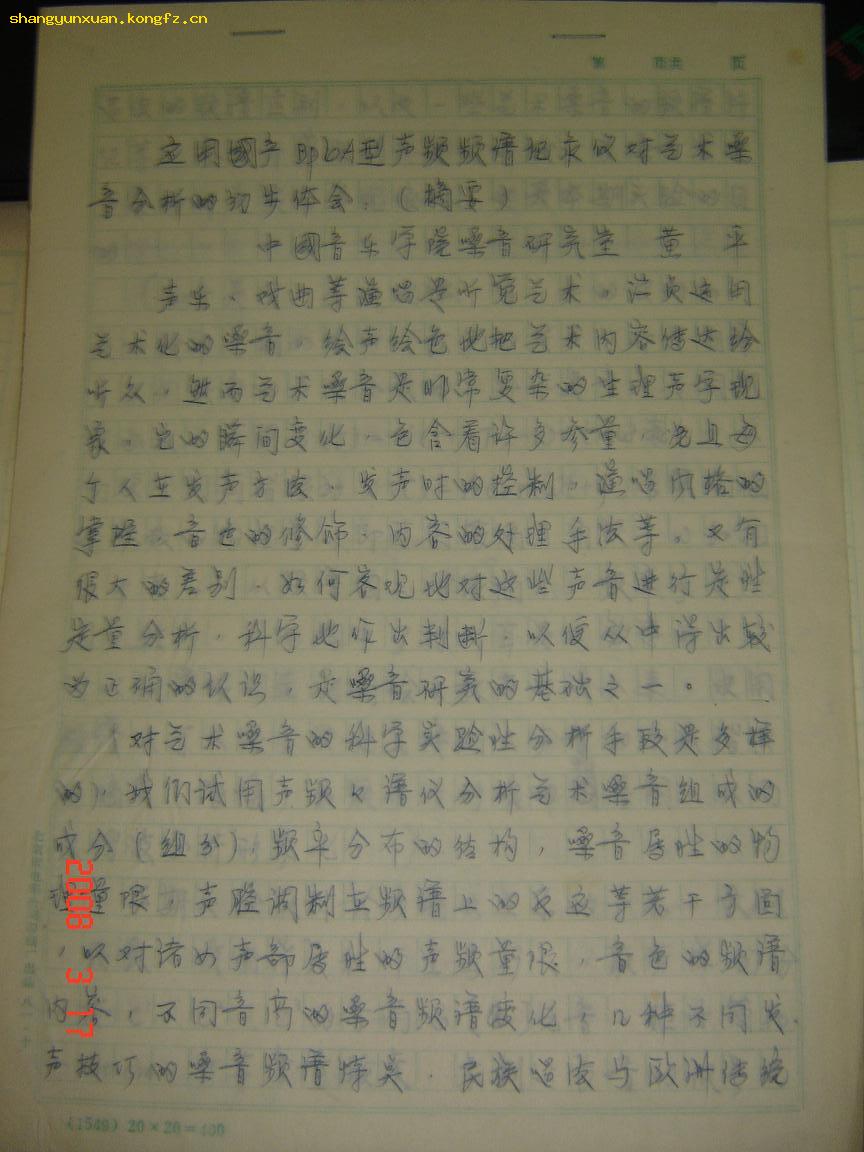 shangyunxuan.kongfz.cn
第 页共 页
应用國产BpbA型声频频谱记录仪对艺术嗓
音分析的初步体会.（摘要）
中國音乐学院嗓音研究室 董 平
声乐、戏曲等演唱是听觉艺术。演员运用
艺术化的嗓音，绘声绘色地把艺术内容传达给
听众，然而艺术嗓音是非常复杂的生理声学现
象，它的瞬间变化，包含着许多参量，况且每
个人在发声方法、发声时的控制，演唱风格的
掌握、音色的修饰、内容的处理手法等。又有
很大的差别，如何客观地对这些声音进行定性
定量分析，科学地作出判断，以便从中得出较
为正确的认识，是嗓音研究的基础之一。
对艺术嗓音的科学实验性分析手段是多样
的，我们试用声频々谱仪分析艺术嗓音组成的
成分（组分）频率分布的结构，嗓音属性的物
理量限，声腔调制在频谱上的反应等若干方面
，以对诸如声部属性的声频量限，音色的频谱
内容，不同音高的嗓音频谱变化，几种不同发
声技巧的嗓音频谱特点，民族唱法与欧洲传统
2008 3 17
(1549) 20×20=400